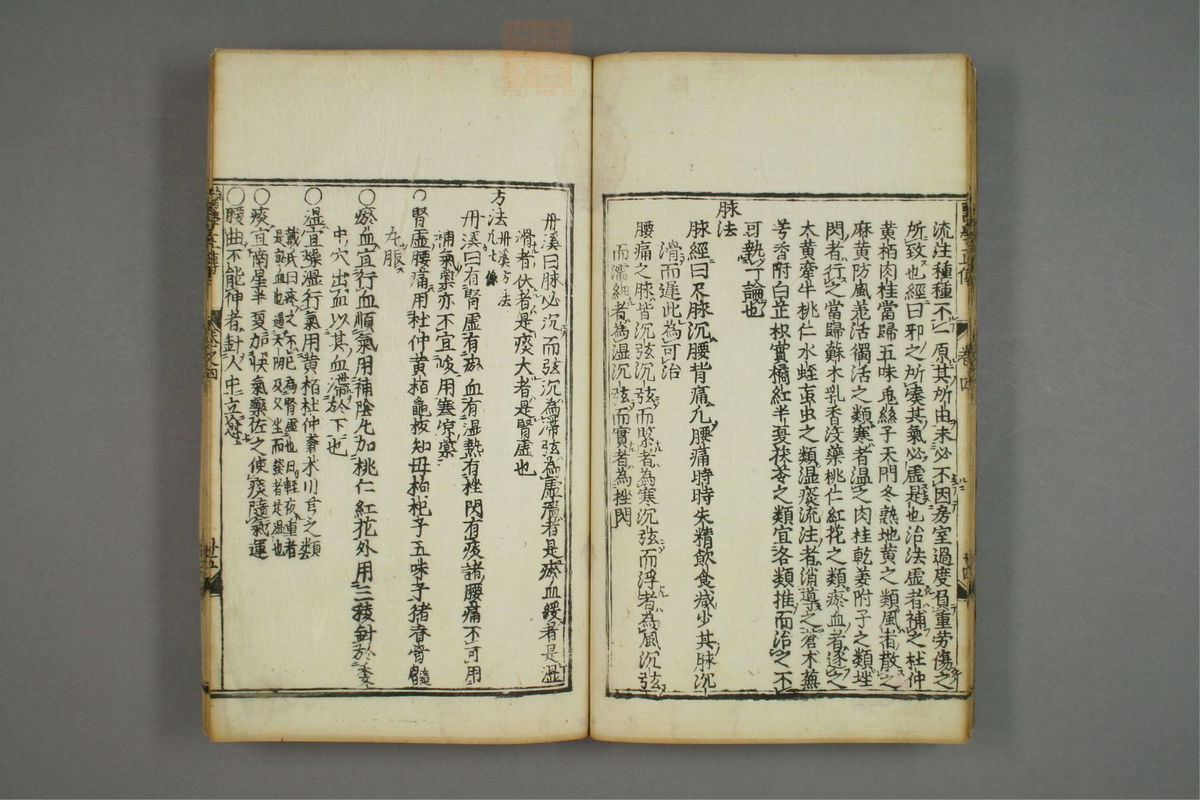 流注種種不一原其所由未必不因房室過度負重劳傷之
所致也經曰邪之所湊其氣必虚是也治法虚者補之杜仲
黄栢肉桂當歸五味兎絲子天門冬熟地黄之類風者散之
麻黄防風羗活獨活之類寒者温之肉桂乾姜附子之類挫
閃者行之當歸蘇木乳香没藥桃仁紅花之類瘀血者逐之
大黄牽牛桃仁水蛭䖟虫之類温痰流注者消導之蒼朮蕪
芎香附白芷枳實橘紅半夏茯苓之類宜各類推而治之不
可執一論也
脉法
脉經曰尺脉沉腰背痛凢腰痛時時失精飲食减少其脉沉
滑而遲此為可治
腰痛之脉皆沉弦沉弦而緊者為寒沉弦而浮者為風沉弦
而濡細者為湿沉弦而實者為挫閃
丹溪曰脉必沉而弦沉為滯弦為虚濇者是瘀血緩者是湿
滑者伏者是痰大者是腎虚也
方法 丹溪方法凢九條
丹溪曰有腎虚有瘀血有湿熱有挫閃有痰諸腰痛不可用
補氣藥亦不宜峻用寒凉藥
○腎虚腰痛用杜仲黄栢龜板知母枸杞子五味子猪脊骨髓
丸服
○瘀血宜行血順氣用補陰丸加桃仁紅花外用三稜針於委
中穴出血以其血滯於下也
○湿宜燥湿行氣用黄栢杜仲蒼朮川芎之類
戴氏曰疼之不已為腎虚也日輕夜重者
是瘀血也遇天陰及久坐而發者是湿也
○痰宜南星半夏加快氣藥佐之使痰隨氣運
○腰曲不能伸者針人中立愈